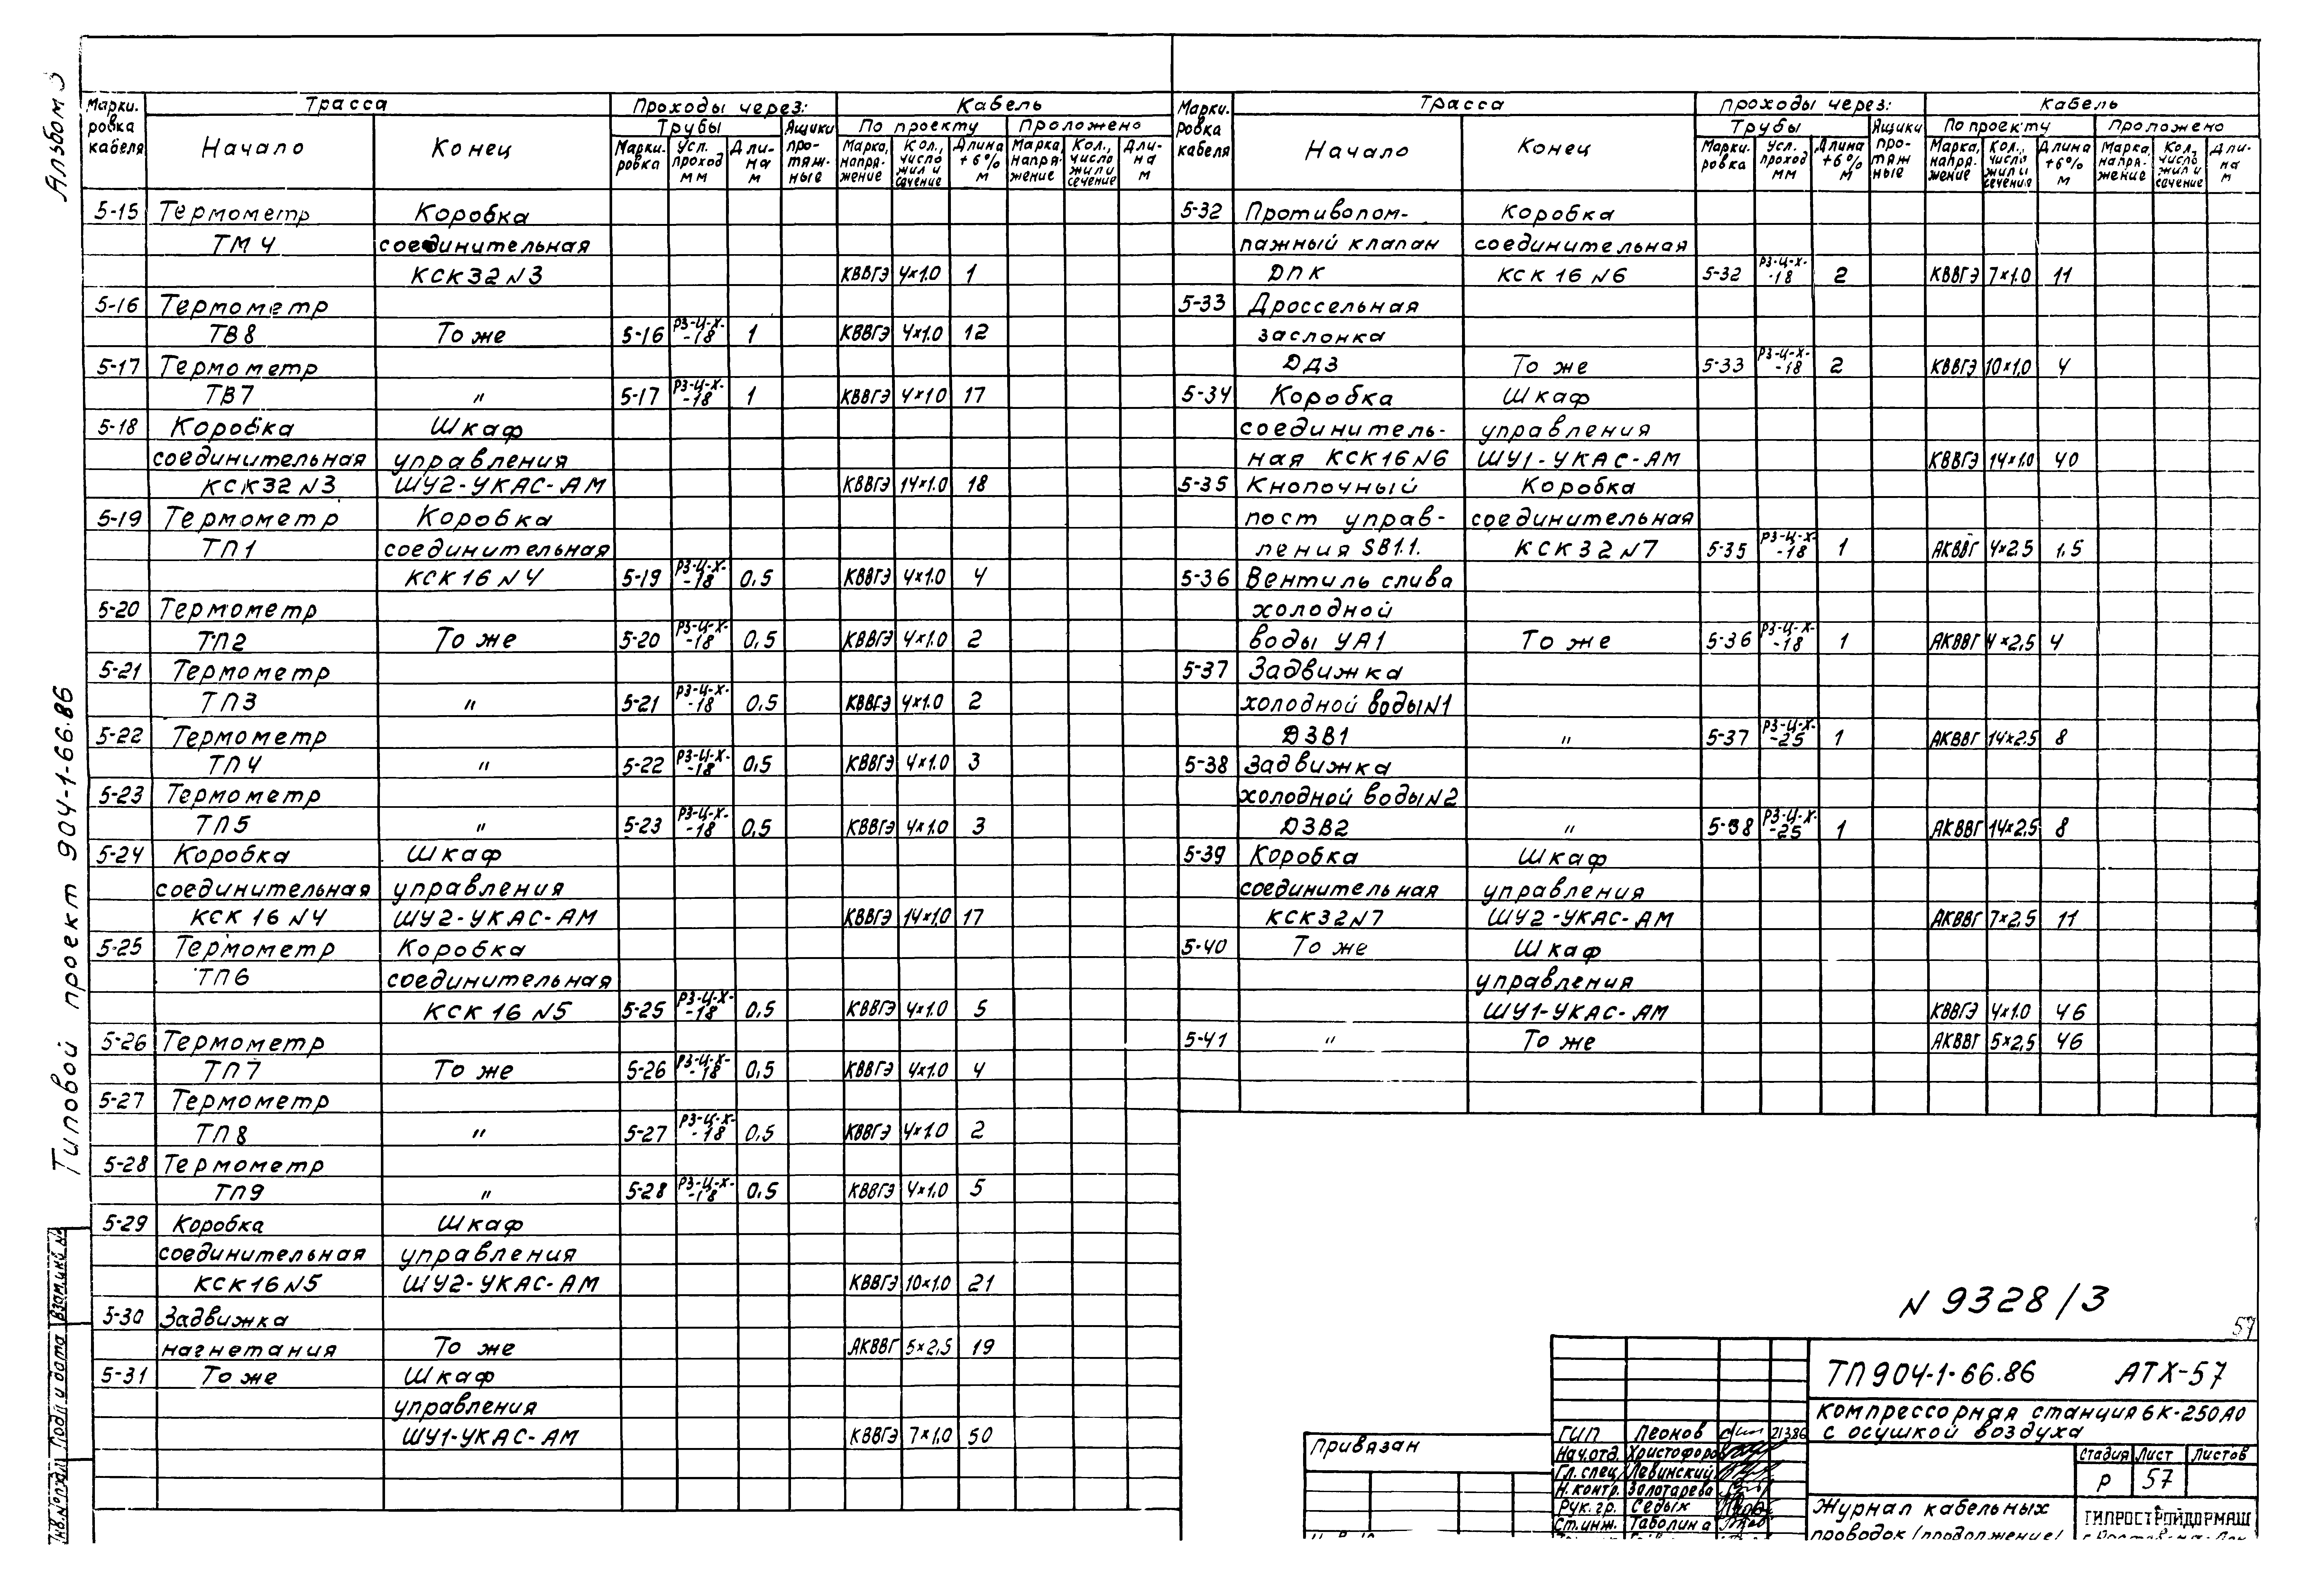 Альбом 3
Типовой проект 904-1-66.86
Марки-ровка кабеля | Трасса | Проходы через: | Кабель
Начало | Конец | Трубы | Ящики про-тяж-ные | По проекту | Проложено
Марки-ровка | Усл. проход мм | Дли-на м | Марка, напря-жение | Кол., число жил и сечение | Длина +6% м | Марка, напря-жение | Кол., число жил и сечение | Дли-на м
5-15 Термометр Коробка
ТМ4 соединительная
КСК32N3 КВВГЭ 4×1.0 1
5-16 Термометр
ТВ8 То же 5-16 РЗ-Ц-Х--18 1 КВВГЭ 4×1.0 12
5-17 Термометр
ТВ7 " 5-17 РЗ-Ц-Х--18 1 КВВГЭ 4×1.0 17
5-18 Коробка Шкаф
соединительная управления
КСК32N3 ШУ2-УКАС-АМ КВВГЭ 14×1.0 18
5-19 Термометр Коробка
ТП1 соединительная
КСК16N4 5-19 РЗ-Ц-Х--18 0,5 КВВГЭ 4×1.0 4
5-20 Термометр
ТП2 То же 5-20 РЗ-Ц-Х--18 0,5 КВВГЭ 4×1.0 2
5-21 Термометр
ТП3 " 5-21 РЗ-Ц-Х--18 0,5 КВВГЭ 4×1.0 2
5-22 Термометр
ТП4 " 5-22 РЗ-Ц-Х--18 0,5 КВВГЭ 4×1.0 3
5-23 Термометр
ТП5 " 5-23 РЗ-Ц-Х--18 0,5 КВВГЭ 4×1.0 3
5-24 Коробка Шкаф
соединительная управления
КСК16N4 ШУ2-УКАС-АМ КВВГЭ 14×1,0 17
5-25 Термометр Коробка
ТП6 соединительная
КСК16N5 5-25 РЗ-Ц-Х--18 0,5 КВВГЭ 4×1.0 5
5-26 Термометр
ТП7 То же 5-26 РЗ-Ц-Х--18 0,5 КВВГЭ 4×1.0 4
5-27 Термометр
ТП8 " 5-27 РЗ-Ц-Х--18 0,5 КВВГЭ 4×1.0 2
5-28 Термометр
ТП9 " 5-28 РЗ-Ц-Х--18 0,5 КВВГЭ 4×1,0 5
5-29 Коробка Шкаф
соединительная управления
КСК16N5 ШУ2-УКАС-АМ КВВГЭ 10×1.0 21
5-30 Задвижка
нагнетания То же АКВВГ 5×2,5 19
5-31 То же Шкаф
управления
ШУ1-УКАС-АМ КВВГЭ 7×1,0 50
Марки-ровка кабеля | Трасса | Проходы через: | Кабель
Начало | Конец | Трубы | Ящики про-тяж ные | По проекту | Проложено
Марки-ровка | Усл. проход мм | Длина +6% м | Марка, напря-жение | Кол., число жил и сечения | Длина +6% м | Марка, напря-жение | Кол, число жил и сечение | Дли-на м
5-32 Противопом- Коробка
пажный клапан соединительная
ДПК КСК16N6 5-32 РЗ-Ц-Х--18 2 КВВГЭ 7×1.0 11
5-33 Дроссельная
заслонка
ДДЗ То же 5-33 РЗ-Ц-Х--18 2 КВВГЭ 10×1,0 4
5-34 Коробка Шкаф
соединитель- управления
ная КСК16N6 ШУ1-УКАС-АМ КВВГЭ 14×1.0 40
5-35 Кнопочный Коробка
пост управ- соединительная
ления SB1.1. КСК32N7 5-35 РЗ-Ц-Х--18 1 АКВВГ 4×2.5 1,5
5-36 Вентиль слива
холодной
воды УА1 То же 5-36 РЗ-Ц-Х--18 1 АКВВГ 4×2,5 4
5-37 Задвижка
холодной водыN1
ДЗВ1 " 5-37 РЗ-Ц-Х--25 1 АКВВГ 14×2.5 8
5-38 Задвижка
холодной водыN2
ДЗВ2 " 5-38 РЗ-Ц-Х--25 1 АКВВГ 14×2,5 8
5-39 Коробка Шкаф
соединительная управления
КСК32N7 ШУ2-УКАС-АМ АКВВГ 7×2,5 11
5-40 То же Шкаф
управления
ШУ1-УКАС-АМ КВВГЭ 4×1.0 46
5-41 " То же АКВВГ 5×2,5 46
N 9328/3
57
ТП904-1-66.86 АТХ-57
Компрессорная станция 6К-250А0
с осушкой воздуха
Стадия Лист Листов
Р 57
Журнал кабельных
проводок (продолжение)
ГИПРОСТРОЙДОРМАШ
Привязан
ГИП Леонов 21386
Нач.отд. Христофоров
Гл.спец Левинский
Н.контр. Золотарева
Рук.гр. Седых
Ст.инж. Таболина
Инв.Nподл Подп и дата Взам.инв.N